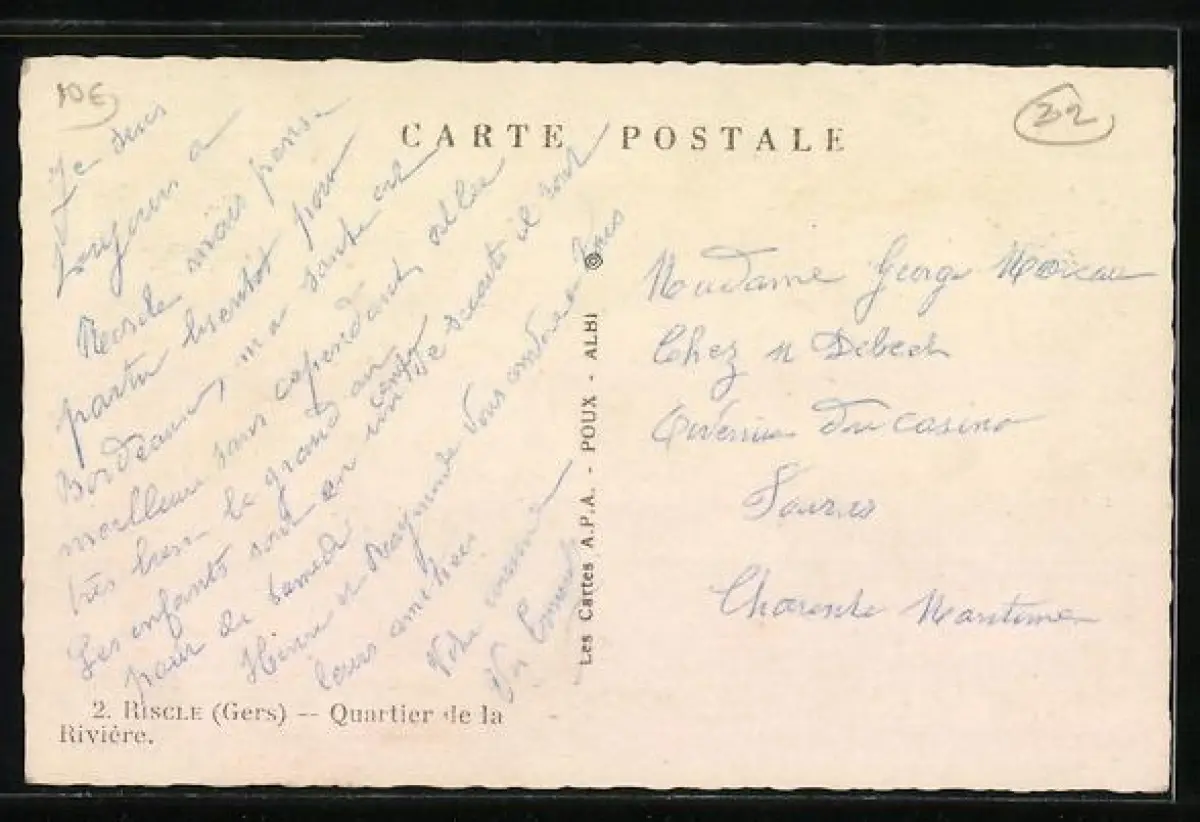 10€
32
CARTE POSTALE
Je suis
toujours a
Riscle mais pense
partir bientôt pour
Bordeaux, ma santé est
meilleure sans cependant aller
très bien le grand air
Les enfants sont en
pour samedi
Henri et Raymonde vous envoie tous
leurs amitiés
Votre cousine
Madame George Moreau
Chez M Debech
Avenue du casino
Fouras
Charente Maritime
Les Cartes A.P.A. - POUX - ALBI
2. RISCLE (Gers) -- Quartier de la
Rivière.